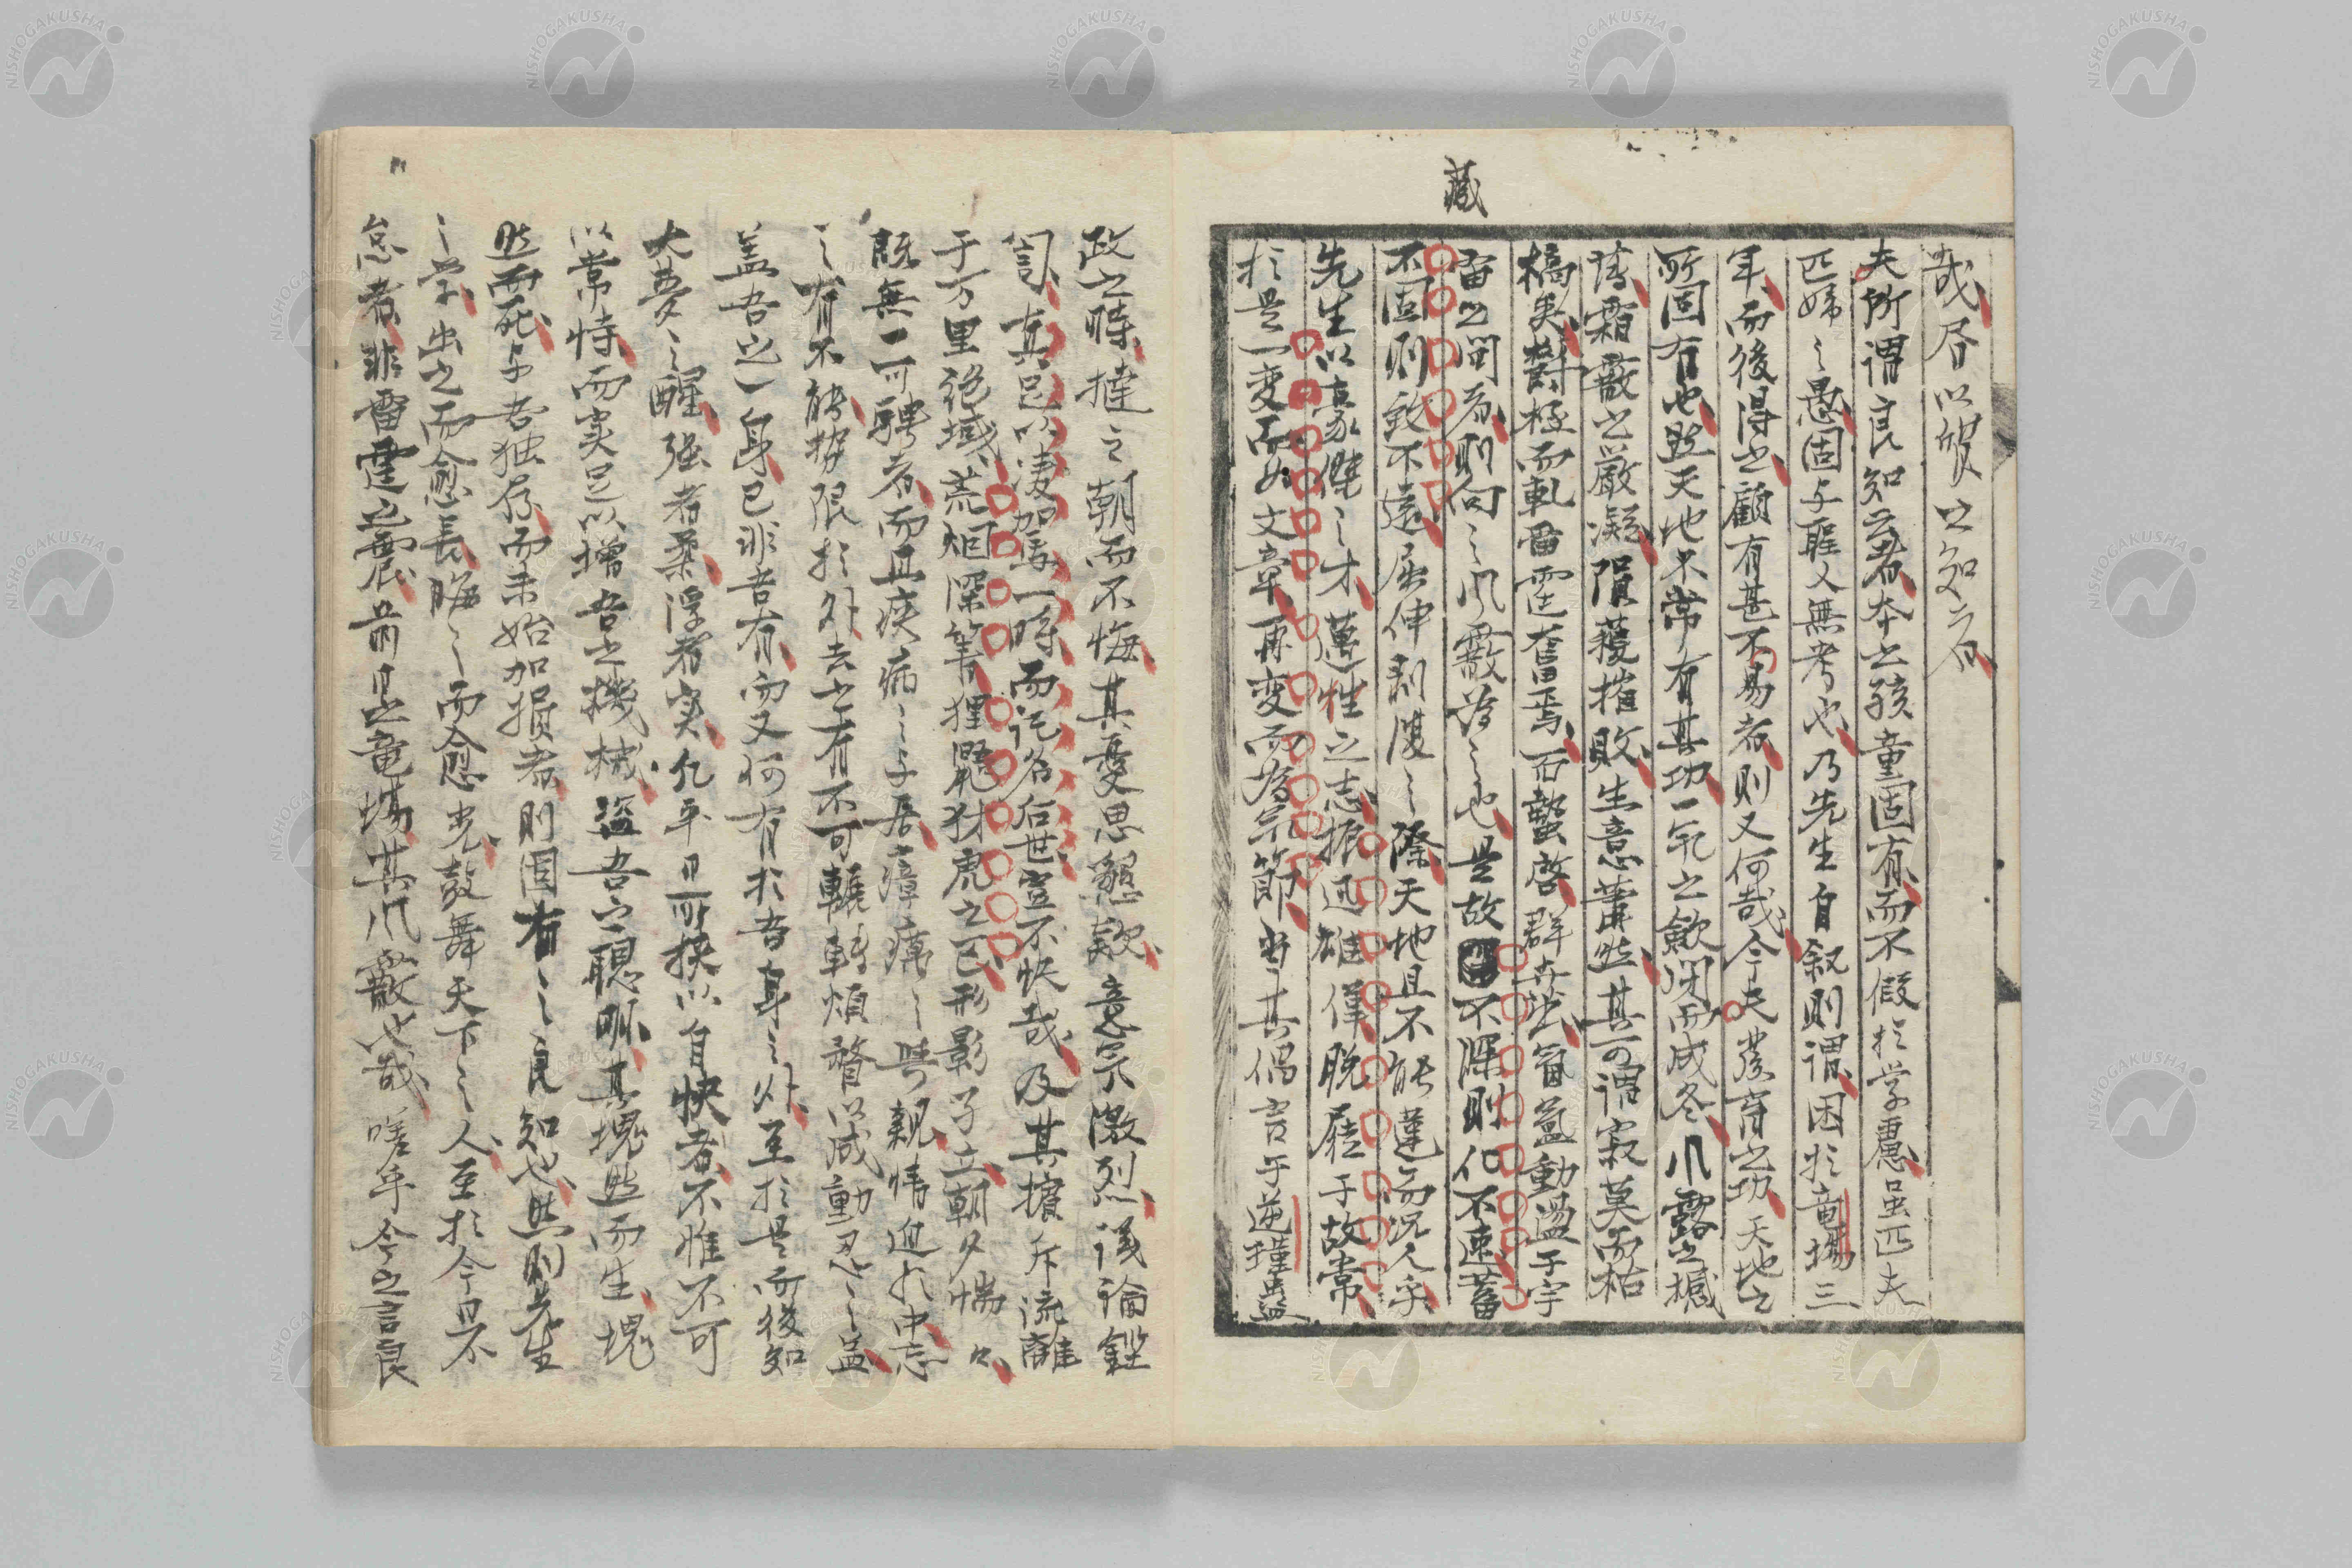 藏
哉居以質之知言
夫所謂良知云者本之孩童固有而不假於学慮虽匹夫
匹婦之愚固与聖人無考也乃先生自叙則謂困於竜場三
年而後得之顧有甚不易者則又何哉今夫發育之功天地之
所固有也然天地不常有其功一气之歛閉而成冬風露之撼
薄霜霰之嚴凝隕穫摧敗生意蕭然其可謂寂莫而枯
槁矣鬱極而軋雷霆奮焉百蟄啓群卉茁氤氳動盪于宇
宙之間者則向之風霰為之也是故不深則化不速蓄
不固則致不遠屈伸剥復之際天地且不能違而况人乎
先生以豪傑之才邁往之志振迅雄偉脱屣于故常
於是一変而為文章再変而為気節当其倡言于逆瑾蠱
政之時撻之朝而不悔其憂思懇欵意気激烈議論鏗
訇真足以凌駕一時而託名后世豈不快哉及其擯斥流離
于万里絶域荒烟深箐狸鼯豺虎之区形影孑立朝夕惴々
既無一可騁者而且疾病之与居瘴癘之与親情迫於中忘
之有不能勢限於外去之有不可輾轉煩瞀以成動忍之益
盖吾之一身已非吾有而又何有於吾身之外至於是而後如
大夢之醒强者柔浮者実凡平日所挾以自快者不惟不可
以常恃而実足以增吾之機械盗吾之聰明其塊然而生塊
然而死与吾独存而未始加損者則固有之良知也然則先生
之学出之而愈長晦之而愈光鼓舞天下之人至於今日不
怠者非雷霆之震前日之竜場其風霰也哉嗟乎今之言良